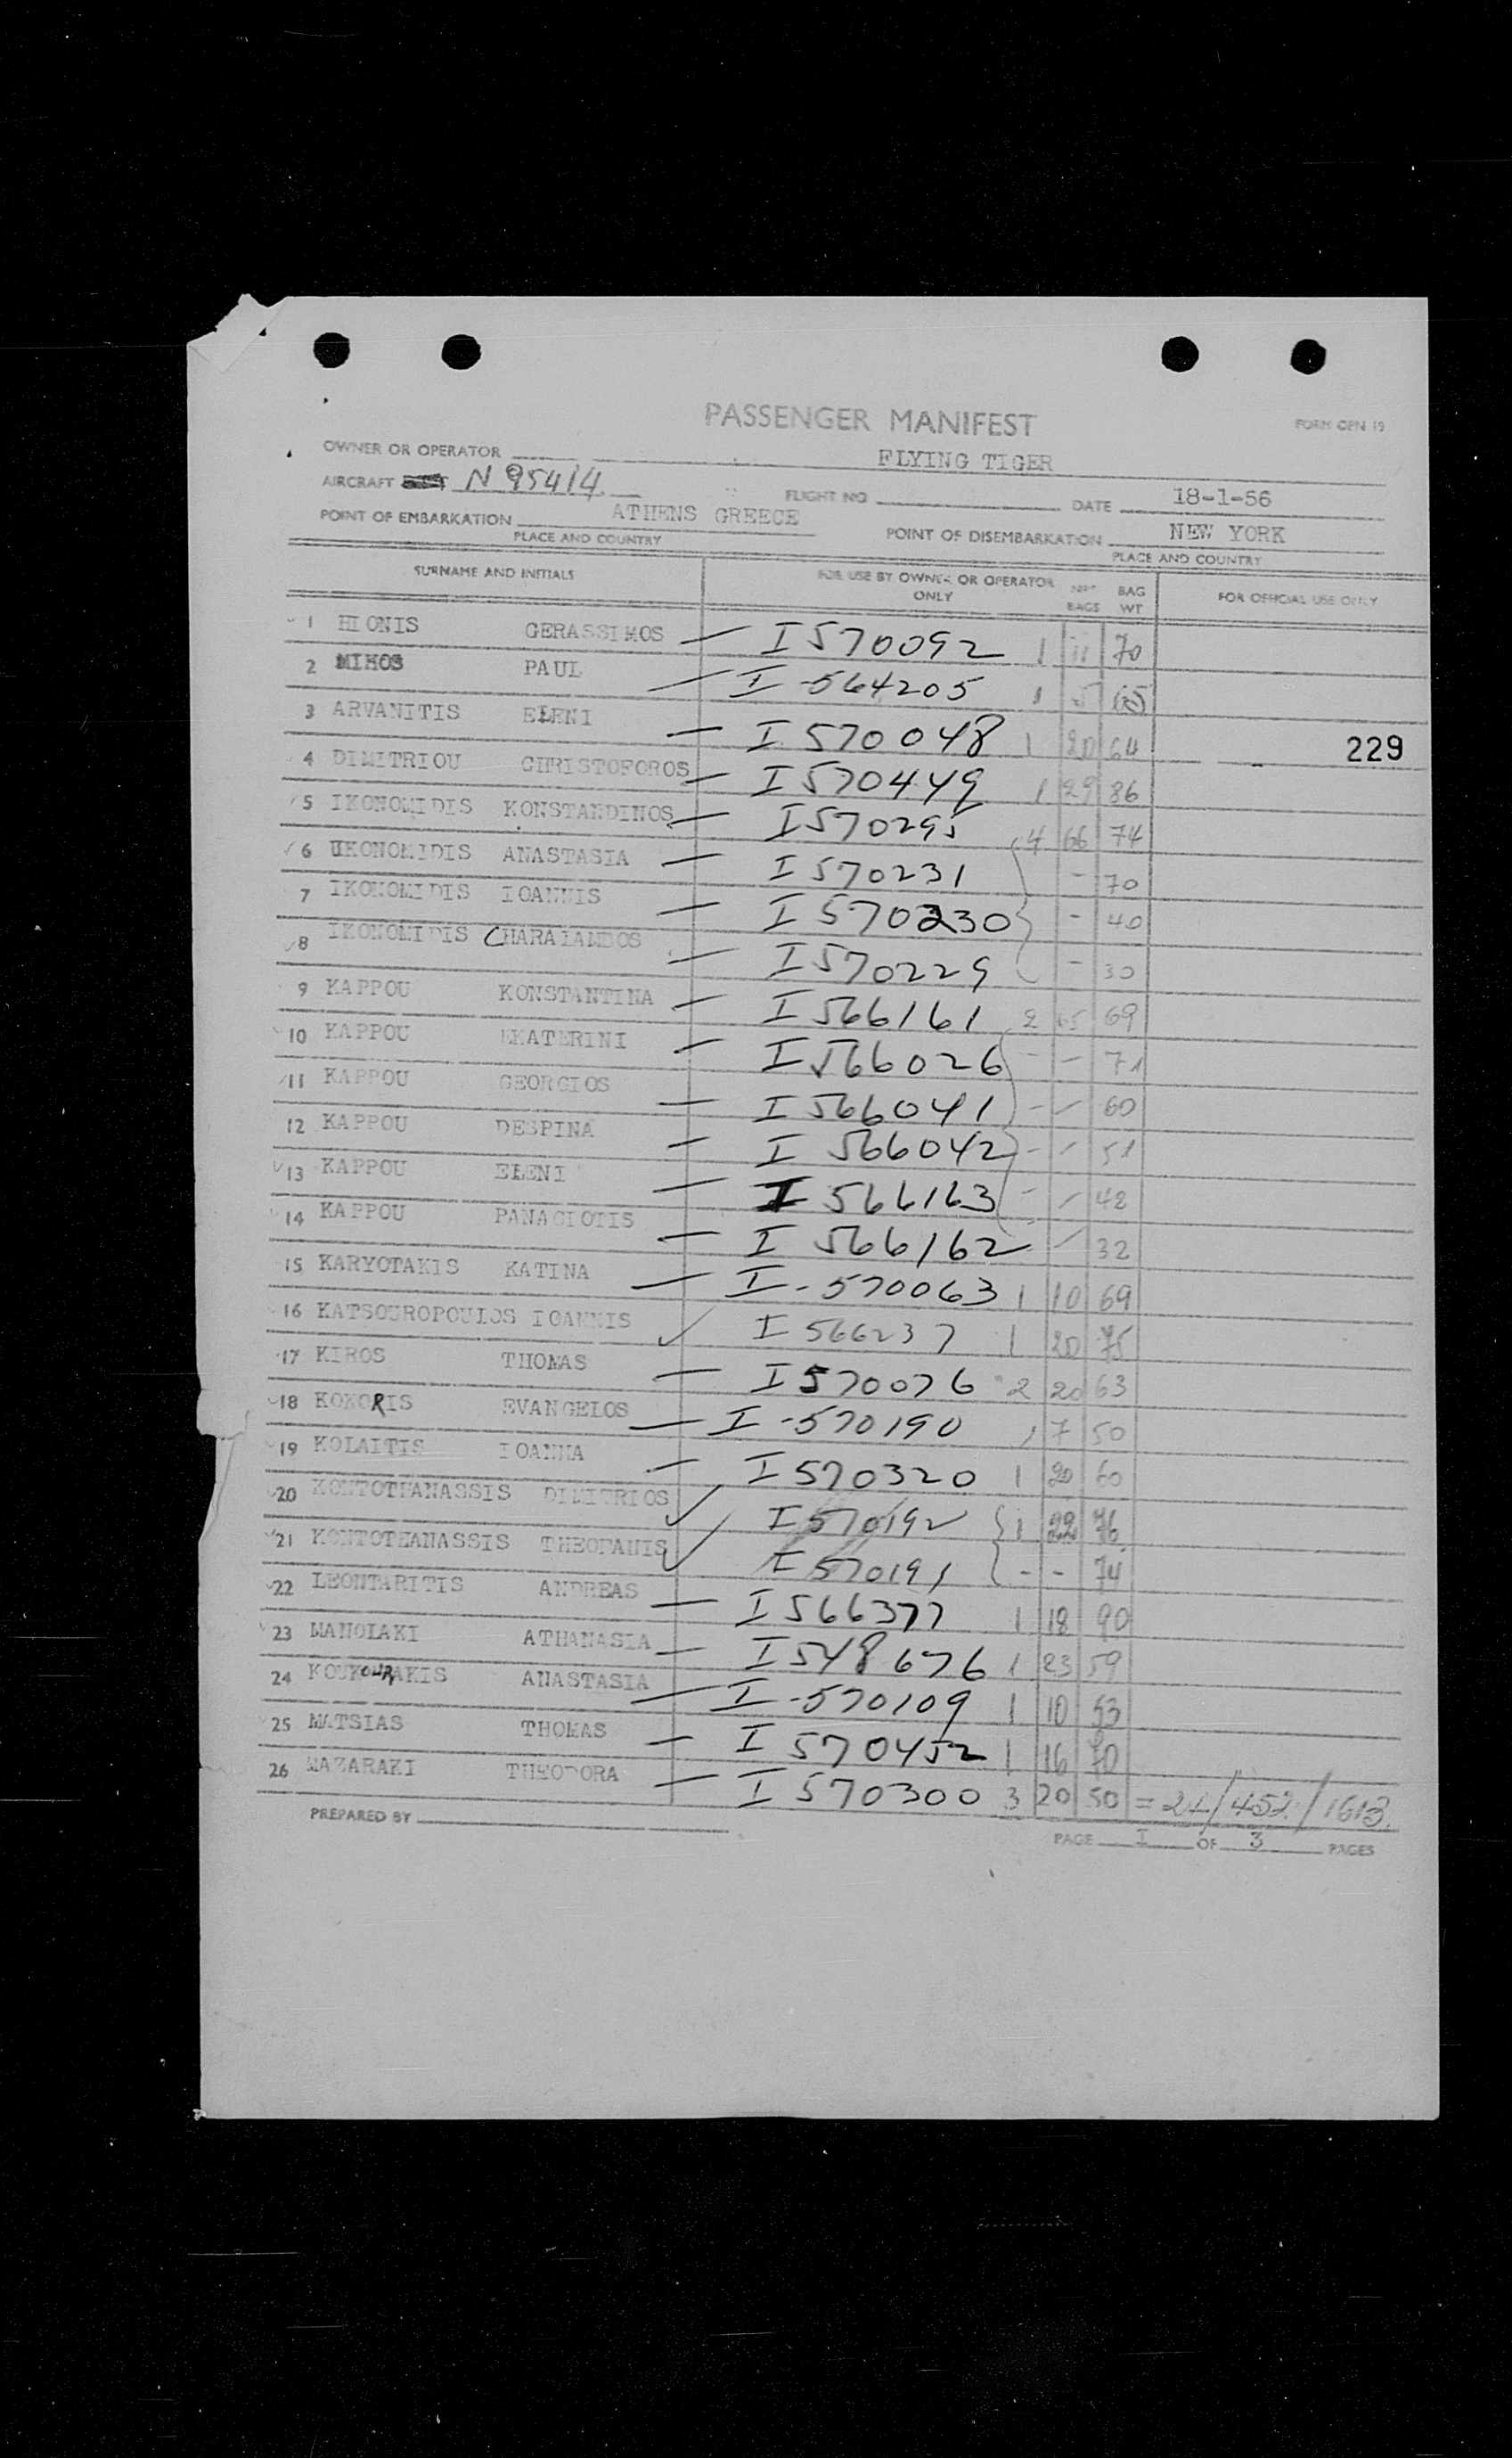 PASSENGER MANIFEST FORM OPN 19
OWNER OR OPERATOR FLYING TIGER
AIRCRAFT N 95414 FLIGHT NO DATE 18-1-56
POINT OF EMBARKATION ATHENS GREECE POINT OF DISEMBARKATION NEW YORK
PLACE AND COUNTRY PLACE AND COUNTRY
SURNAME AND INITIALS FOR USE BY OWNER OR OPERATOR ONLY BAGS BAG WT FOR OFFICIAL USE ONLY
1 HIONIS GERASSIMOS — I 570092 1 11 70
2 MIHOS PAUL — I-564205 1 5 65
3 ARVANITIS ELENI — I 570048 1 20 64 229
4 DIMITRIOU CHRISTOFOROS — I 570449 1 29 86
5 IKONOMIDIS KONSTANDINOS — I 570295 4 66 74
6 IKONOMIDIS ANASTASIA — I 570231 - 70
7 IKONOMIDIS IOANNIS — I 570230 - 40
8 IKONOMIDIS CHARALAMBOS — I 570229 - 30
9 KAPPOU KONSTANTINA — I 566161 2 65 69
10 KAPPOU EKATERINI — I 566026 - - 71
11 KAPPOU GEORGIOS — I 566041 - - 60
12 KAPPOU DESPINA — I 566042 - - 51
13 KAPPOU ELENI — I 566163 - - 42
14 KAPPOU PANAGIOTIS — I 566162 - 32
15 KARYOTAKIS KATINA — I-570063 1 10 69
16 KATSOUROPOULOS IOANNIS ✓ I 566237 1 20 75
17 KIROS THOMAS — I 570076 2 20 63
18 KOKORIS EVANGELOS — I-570190 1 7 50
19 KOLAITIS IOANNA — I 570320 1 20 60
20 KONTOTHANASSIS DIMITRIOS ✓ I 570192 1 22 76
21 KONTOTHANASSIS THEOFANIS ✓ I 570191 - - 74
22 LEONTARITIS ANDREAS — I 566377 1 18 90
23 MANOLAKI ATHANASIA — I 548676 1 23 59
24 KOUKOURAKIS ANASTASIA — I-570109 1 10 53
25 MATSIAS THOMAS — I 570452 1 16 70
26 MAZARAKI THEODORA — I 570300 3 20 50 = 24/452/1613.
PREPARED BY
PAGE I OF 3 PAGES